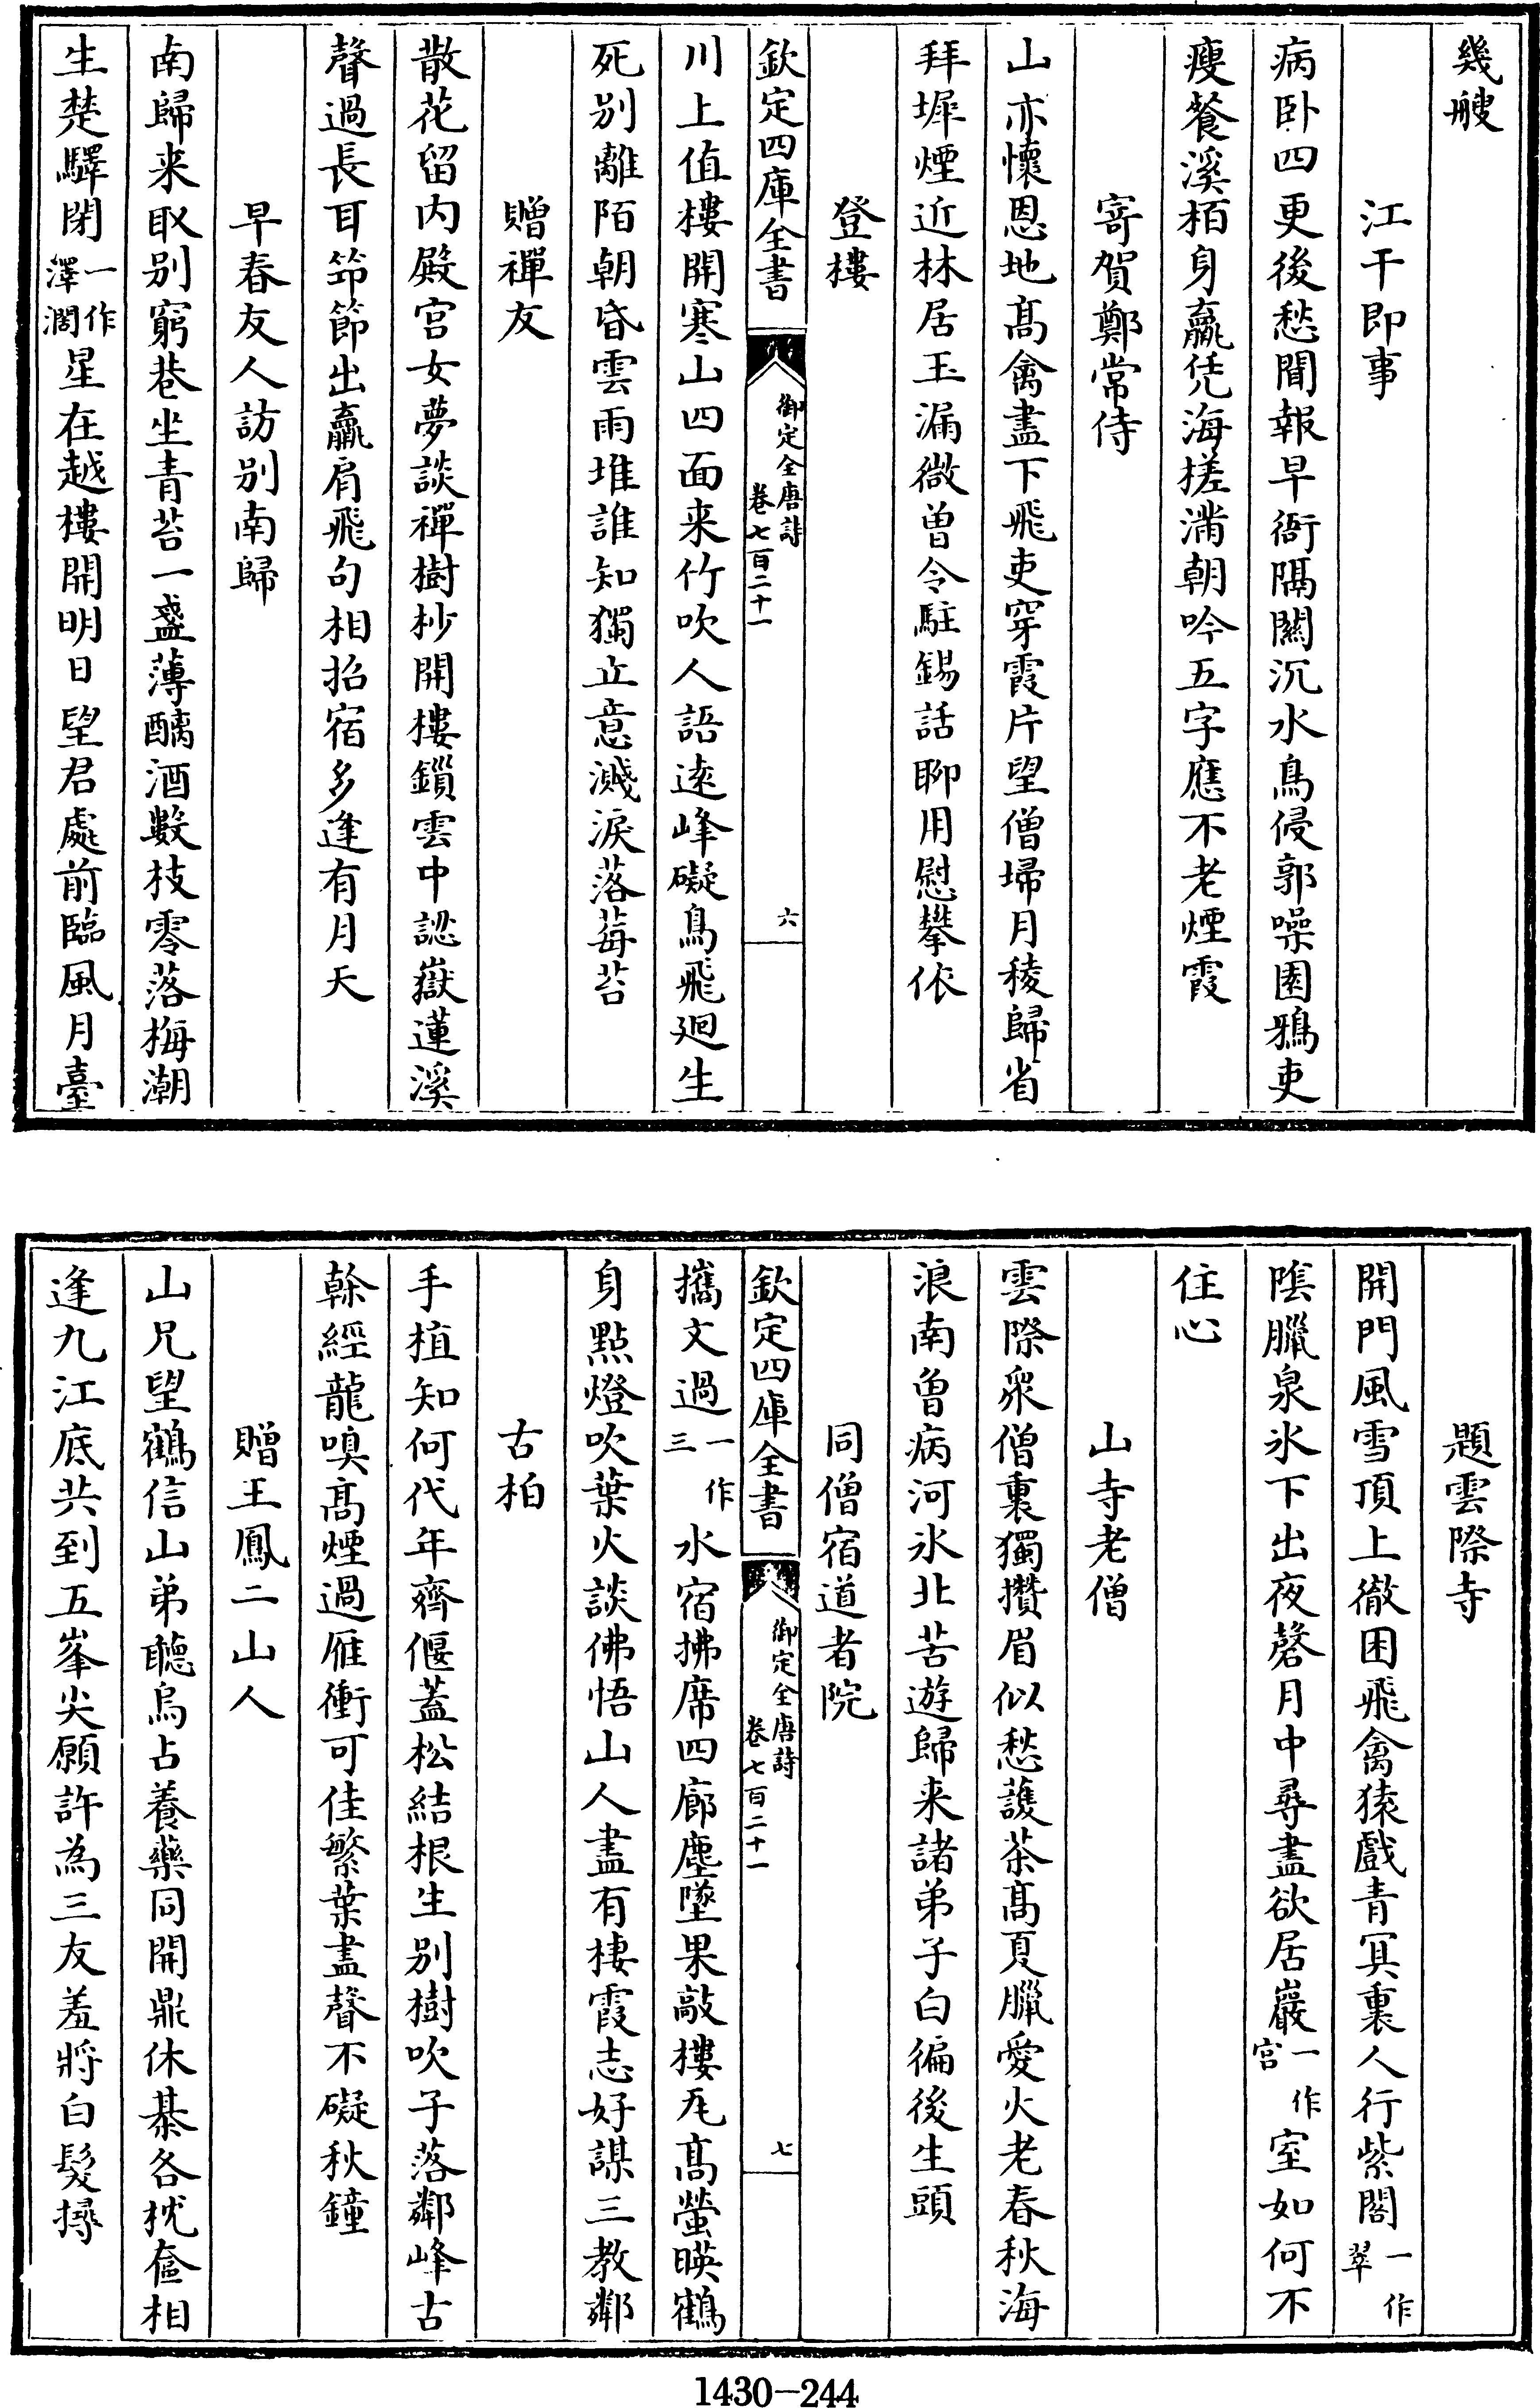 幾艘
江干即事
病卧四更後愁聞報早衙隔關沉水鳥侵郭噪園鴉吏
瘦餐溪栢身羸凭海槎滿朝吟五字應不老煙霞
寄賀鄭常侍
山亦懷恩地髙禽盡下飛吏穿霞片望僧埽月稜歸省
拜墀煙近林居玉漏微曽令駐錫話聊用慰攀依
登樓
欽定四庫全書
御定全唐詩
卷七百二十一
六
川上值樓開寒山四面来竹吹人語逺峰礙鳥飛廻生
死别離陌朝昏雲雨堆誰知獨立意濺淚落莓苔
贈禪友
散花留内殿宫女夢談禪樹杪開樓鎖雲中認嶽蓮溪
聲過長耳筇節出羸肩飛句相招宿多逢有月天
早春友人訪别南歸
南歸来取别窮巷坐青苔一盞薄醨酒數枝零落梅潮
生楚驛閉一作澤濶星在越樓開明日望君處前臨風月臺
題雲際寺
開門風雪頂上徹困飛禽猿戲青冥裏人行紫閣一作翠
陰臘泉氷下出夜磬月中尋盡欲居巖一作宫室如何不
住心
山寺老僧
雲際衆僧裏獨攢眉似愁護茶髙夏臘愛火老春秋海
浪南曽病河氷北苦遊歸来諸弟子白徧後生頭
同僧宿道者院
欽定四庫全書
御定全唐詩
卷七百二十一
七
攜文過一作三水宿拂席四廊塵墜果敲樓瓦髙螢暎鶴
身點燈吹葉火談佛悟山人盡有棲霞志好謀三教鄰
古柏
手植知何代年齊偃蓋松結根生别樹吹子落鄰峰古
榦經龍嗅髙煙過雁衝可佳繁葉盡聲不礙秋鐘
贈王鳳二山人
山兄望鶴信山弟聽烏占養藥同開鼎休棊各枕奩相
逢九江底共到五峯尖願許為三友羞將白髮撏
1430-244